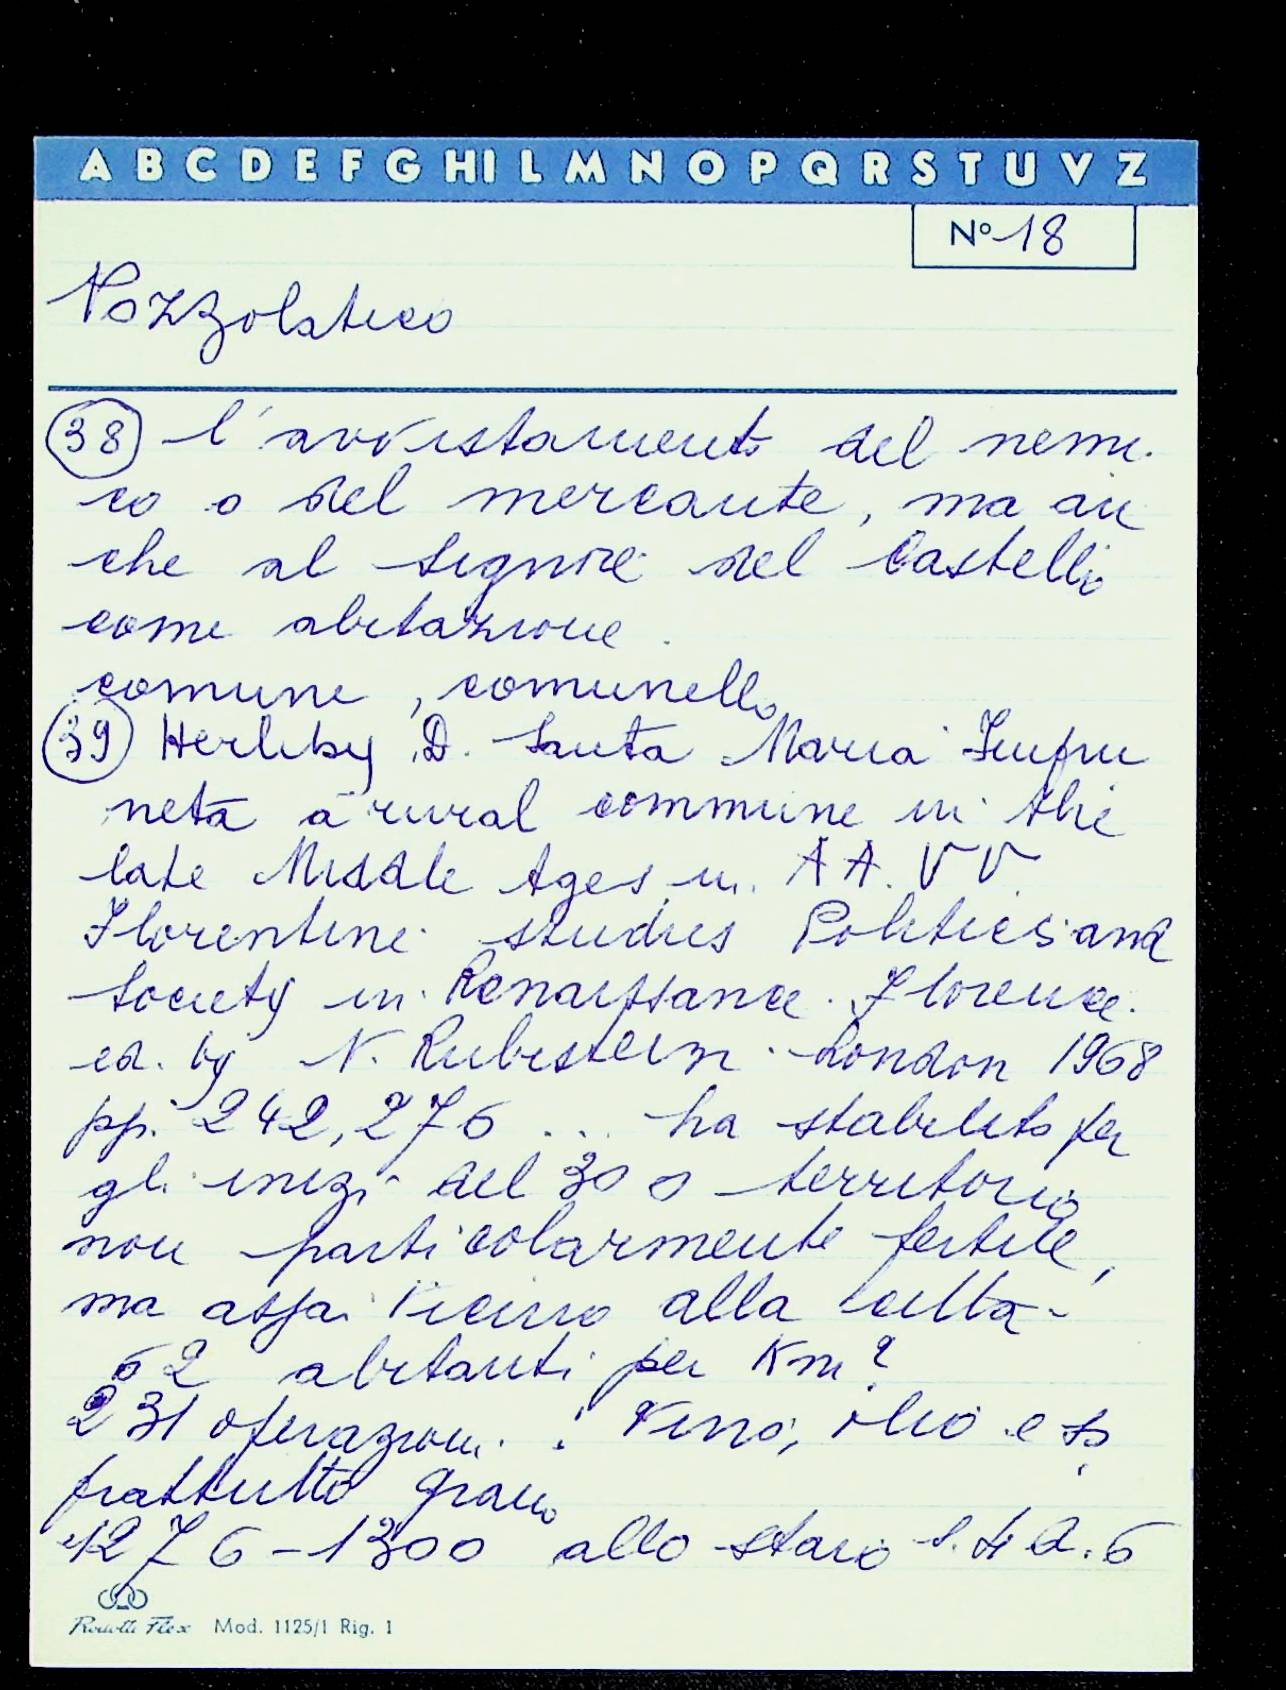 A B C D E F G H I L M N O P Q R S T U V Z
N° 18
Pozzolatico
38 l'avvistamento del nemi-
co o del mercante, ma an
che al signore del Castello
come abitazione.
comune, comunello
39 Herlihy D. Santa Maria Impru
neta a rural commune in the
late Middle Ages in AA. VV.
Florentine studies Politics and
Society in Renaissance Florence.
ed. by N. Rubistein. London 1968
pp. 242, 276 ... ha stabilito per
gli inizi del 300 territorio
non particolarmente fertile,
ma assai vicino alla città -
62 abitanti per Km²
231 operazioni: vino, olio e so
prattutto grano
1276-1300 allo staio s. 4 d. 6
Mod. 1125/1 Rig. 1